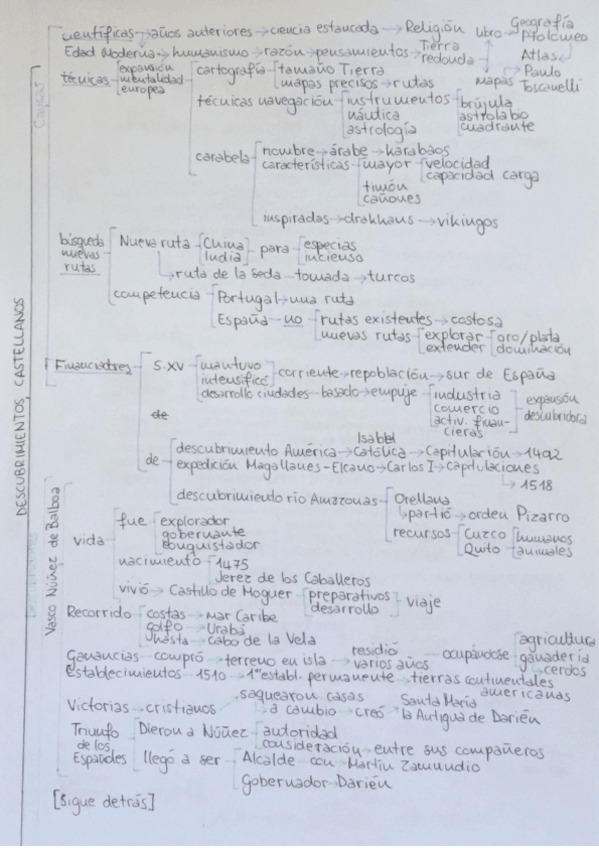 DESCUBRIMIENTOS CASTELLANOS
Causas
científicas → años anteriores → ciencia estancada → Religión Libro → Geografía Ptolomeo
Edad Moderna → humanismo → razón → pensamientos → Tierra redonda → Atlas
Mapas → Paulo Toscanelli
técnicas expansión mentalidad europea
cartografía → tamaño Tierra
mapas precisos → rutas
técnicas navegación instrumentos brújula
náutica astrolabio
astrología cuadrante
carabela nombre → árabe → karabaos
características mayor velocidad
capacidad carga
timón
cañones
inspiradas → drakhans → vikingos
búsqueda nuevas rutas
Nueva ruta China India para especias incienso
ruta de la seda → tomada → turcos
competencia Portugal → una ruta
España → no rutas existentes → costosa
nuevas rutas explorar oro/plata
extender dominación
Financiadores
S.XV mantuvo intensificó corriente → repoblación → sur de España
desarrollo ciudades → basado → empuje industria
comercio
activ. finan-
cieras
expansión descubridora
de
de
descubrimiento América → Isabel Católica → Capitulación → 1492
expedición Magallanes-Elcano → Carlos I → capitulaciones
→ 1518
descubrimiento río Amazonas Orellana
partió → orden Pizarro
recursos Cuzco humanos
Quito animales
Vasco Núñez de Balboa
vida fue explorador
gobernante
conquistador
nacimiento 1475
Jerez de los Caballeros
vivió → Castillo de Moguer preparativos
desarrollo viaje
Recorrido costas → Mar Caribe
golfo → Urabá
hasta → Cabo de la Vela
Ganancias → compró → terreno en isla → residió varios años → ocupándose agricultura
ganadería
cerdos
Establecimientos → 1510 → 1er establ. permanente → tierras continentales americanas
Victorias → cristianos → saquearon casas
a cambio → creó → Santa María la Antigua de Darién
Triunfo de los Españoles
Dieron a Núñez autoridad
consideración → entre sus compañeros
llegó a ser Alcalde con → Martín Zamundio
Gobernador Darién
[Sigue detrás]